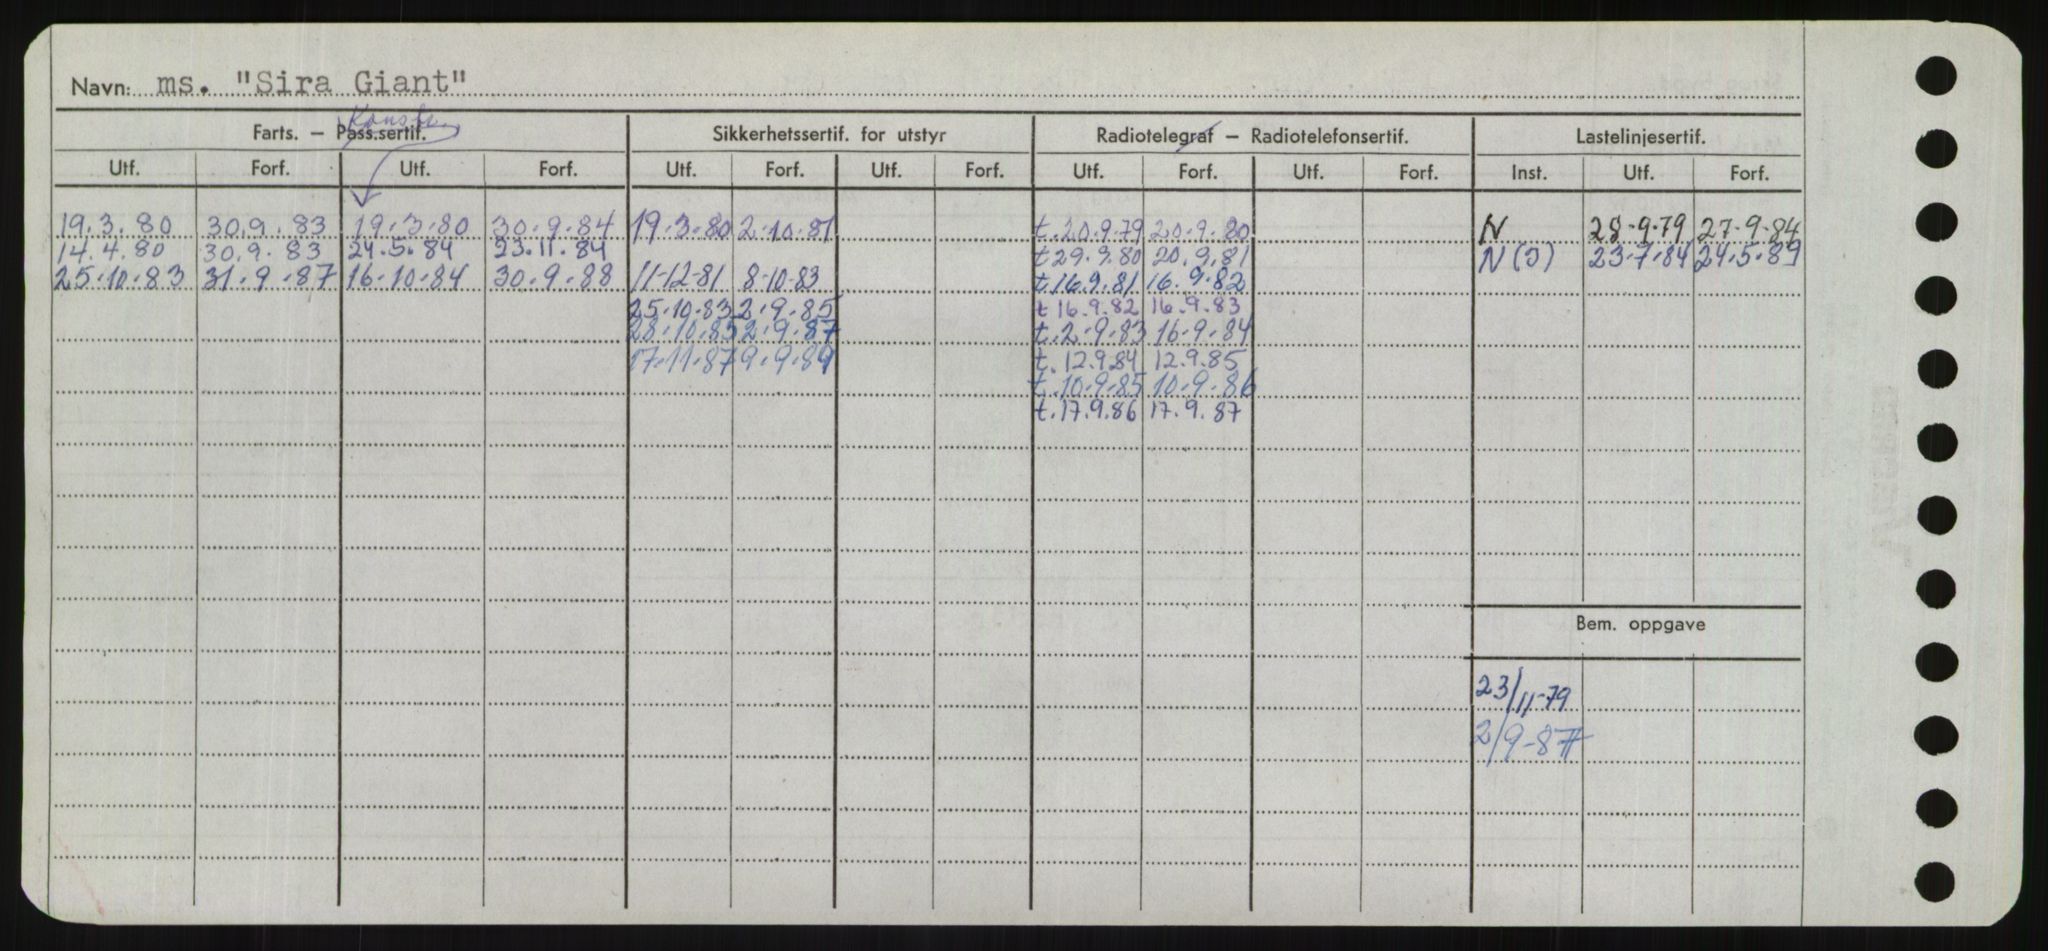 Navn: ms. "Sira Giant"
Konstr.
Farts. – Pass.sertif. Sikkerhetssertif. for utstyr Radiotelegraf – Radiotelefonsertif. Lastelinjesertif.
Utf. Forf. Utf. Forf. Utf. Forf. Utf. Forf. Utf. Forf. Utf. Forf. Inst. Utf. Forf.
19.3.80 30.9.83 19.3.80 30.9.84 19.3.80 2.10.81 t.20.9.79 20.9.80 N 28-9-79 27-9-84
14.4.80 30.9.83 24.5.84 23.11.84 t29.9.80 20.9.81 N(J) 23-7-84 24.5.89
25.10.83 31.9.87 16.10.84 30.9.88 11-12-81 8-10-83 t.16.9.81 16.9.82
25.10.83 2.9.85 t16.9.82 16.9.83
28.10.85 2.9.87 t.2.9.83 16.9.84
17.11.87 9.9.89 t.12.9.84 12.9.85
t.10.9.85 10.9.86
t.17.9.86 17.9.87
Bem. oppgave
23/11-79
2/9-87